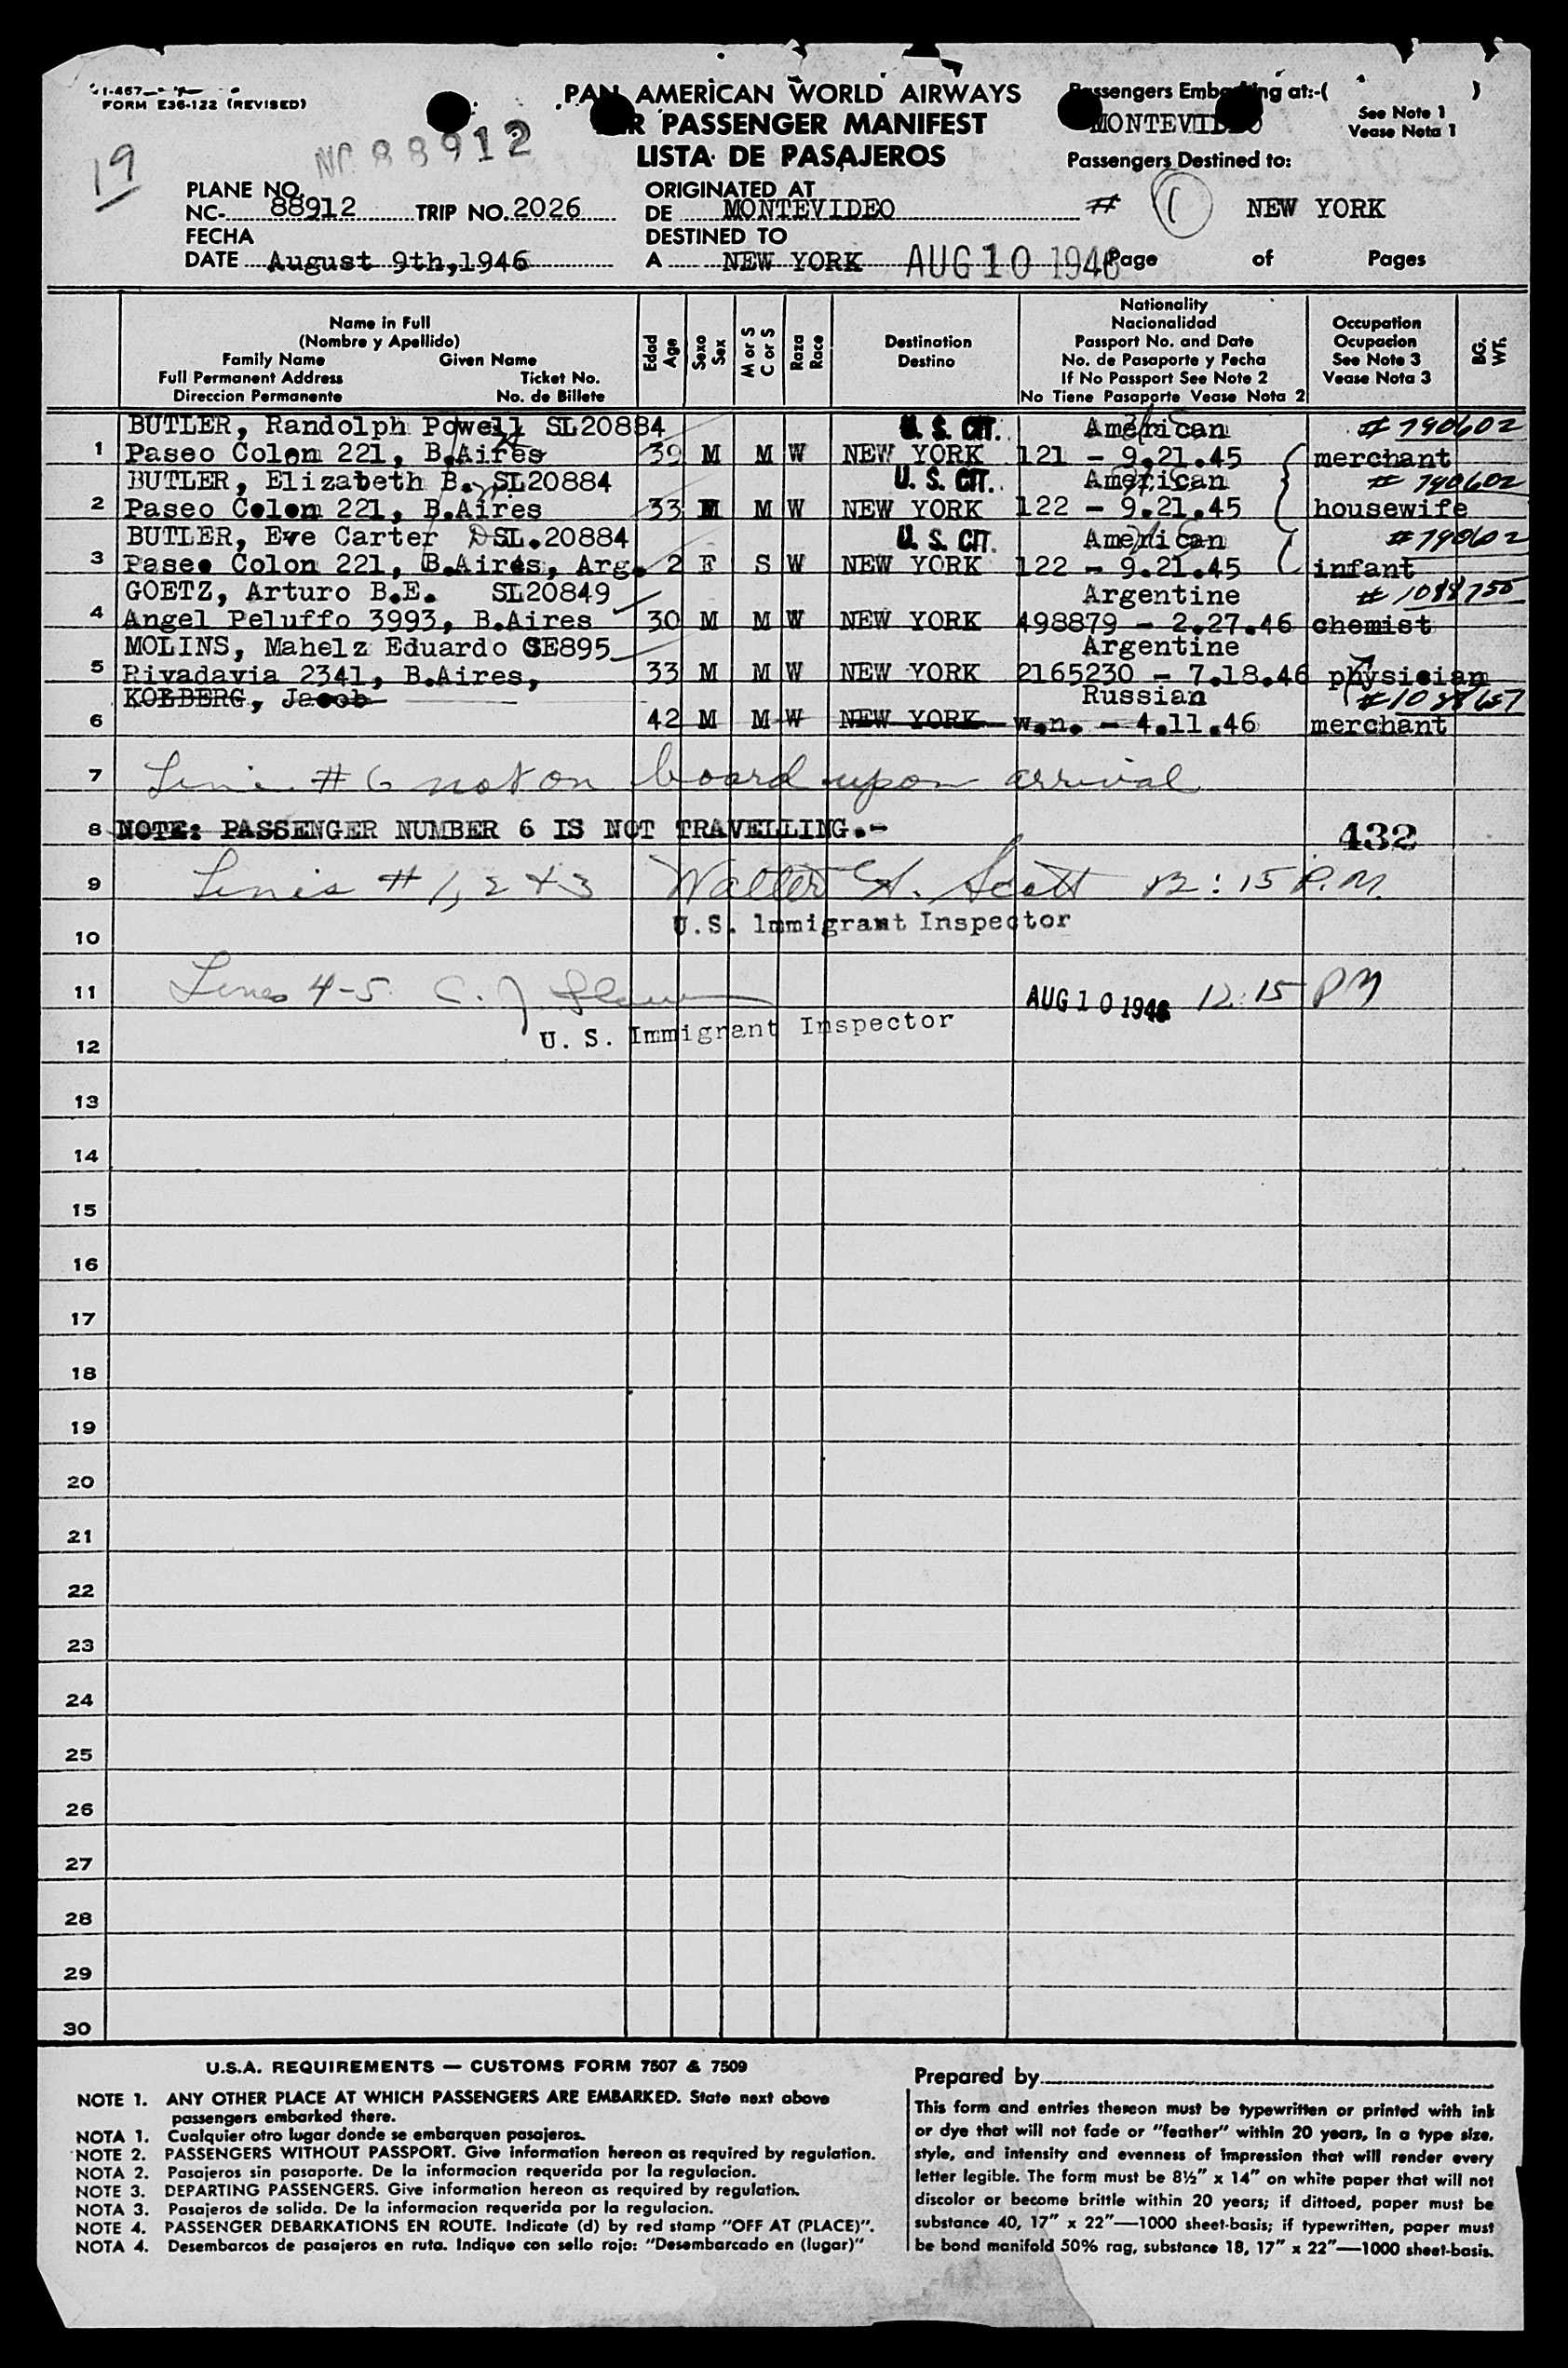 FORM E36-122 (REVISED)
19
NC 88912
PAN AMERICAN WORLD AIRWAYS
AIR PASSENGER MANIFEST
LISTA DE PASAJEROS
Passengers Embarking at:-( )
MONTEVIDEO
See Note 1
Vease Nota 1
Passengers Destined to:
# 1 NEW YORK
PLANE NO.
NC- 88912 TRIP NO. 2026
FECHA
DATE August 9th,1946
ORIGINATED AT
DE MONTEVIDEO
DESTINED TO
A NEW YORK AUG 10 1946
Page of Pages
Name in Full
(Nombre y Apellido)
Family Name Given Name
Full Permanent Address Ticket No.
Direccion Permanente No. de Billete
Edad
Age
Sexo
Sex
M or S
C or S
Raza
Race
Destination
Destino
Nationality
Nacionalidad
Passport No. and Date
No. de Pasaporte y Fecha
If No Passport See Note 2
No Tiene Pasaporte Vease Nota 2
Occupation
Ocupacion
See Note 3
Vease Nota 3
BG.
WT.
BUTLER, Randolph Powell SL20884 U. S. CIT. American #790602
1 Paseo Colon 221, B.Aires 39 M M W NEW YORK 121 - 9.21.45 merchant
BUTLER, Elizabeth B. SL20884 U. S. CIT. American #790602
2 Paseo Colom 221, B.Aires 33 M M W NEW YORK 122 - 9.21.45 housewife
BUTLER, Eve Carter SL.20884 U. S. CIT. American #790602
3 Paseo Colon 221, B.Aires, Arg. 2 F S W NEW YORK 122 - 9.21.45 infant
GOETZ, Arturo B.E. SL20849 Argentine #1088755
4 Angel Peluffo 3993, B.Aires 30 M M W NEW YORK 498879 - 2.27.46 chemist
MOLINS, Mahelz Eduardo GE895 Argentine
5 Rivadavia 2341, B.Aires, 33 M M W NEW YORK 2165230 - 7.18.46 physician
KOLBERG, Jacob Russian #1088657
6 42 M M W NEW YORK w.n. - 4.11.46 merchant
7 Line #6 not on board upon arrival
8 NOTE: PASSENGER NUMBER 6 IS NOT TRAVELLING.- 432
9 Lines # 1, 2 & 3 Walter H. Scott 12:15 P.M.
U.S. Immigrant Inspector
10
11 Lines 4-5 C. J. AUG 10 1946 12:15 PM
U. S. Immigrant Inspector
12
13
14
15
16
17
18
19
20
21
22
23
24
25
26
27
28
29
30
U.S.A. REQUIREMENTS — CUSTOMS FORM 7507 & 7509
NOTE 1. ANY OTHER PLACE AT WHICH PASSENGERS ARE EMBARKED. State next above
passengers embarked there.
NOTA 1. Cualquier otro lugar donde se embarquen pasajeros.
NOTE 2. PASSENGERS WITHOUT PASSPORT. Give information hereon as required by regulation.
NOTA 2. Pasajeros sin pasaporte. De la informacion requerida por la regulacion.
NOTE 3. DEPARTING PASSENGERS. Give information hereon as required by regulation.
NOTA 3. Pasajeros de salida. De la informacion requerida por la regulacion.
NOTE 4. PASSENGER DEBARKATIONS EN ROUTE. Indicate (d) by red stamp "OFF AT (PLACE)".
NOTA 4. Desembarcos de pasajeros en ruta. Indique con sello rojo: "Desembarcado en (lugar)"
Prepared by
This form and entries thereon must be typewritten or printed with ink
or dye that will not fade or "feather" within 20 years, in a type size,
style, and intensity and evenness of impression that will render every
letter legible. The form must be 8½" x 14" on white paper that will not
discolor or become brittle within 20 years; if dittoed, paper must be
substance 40, 17" x 22"—1000 sheet-basis; if typewritten, paper must
be bond manifold 50% rag, substance 18, 17" x 22"—1000 sheet-basis.